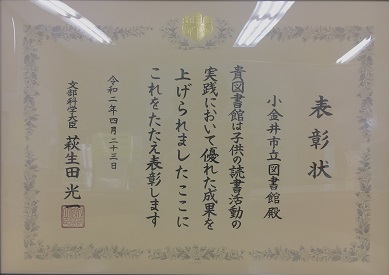 表彰状
小金井市立図書館 殿
貴図書館は子供の読書活動の
実践において優れた成果を
上げられましたここに
これをたたえ表彰します
令和二年四月二十三日
文部科学大臣 萩生田 光一